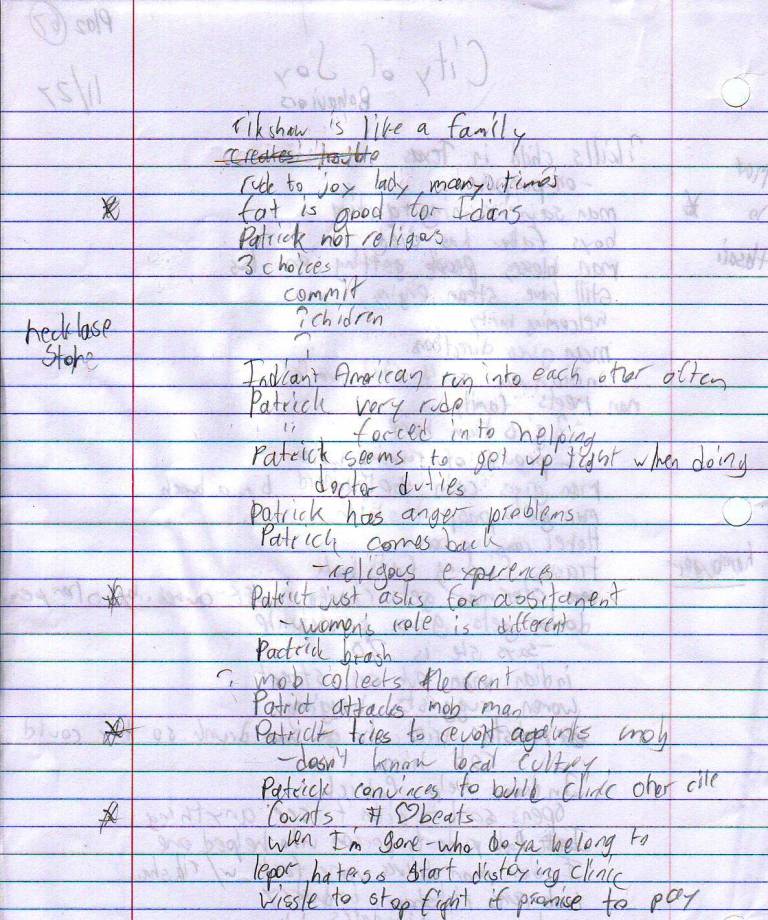 rikshaw is like a family
creates trouble
rude to joy lady many times
fat is good for Idians
Patrick not religos
3 choices
commit
? children
?
necklase
Stope
Indicant American run into each other often
Patrick very rude
" forced into helping
Patrick seems to get up tight when doing
doctor duties
Patrick has anger problems
Patrick comes back
- religous experences
Patrict just asks for assitanent
- women's role is different
Pactrick brash
? mob collects the cent
Patrict attacks mob man
Patrict tries to revolt againts mob
- dosn't know local cultry
Patrick convinces to build clinic other
Counts # ♡ beats
when I'm gone - who do ya belong to
lepor haterss start distoying clinic
wissle to stop fight if promise to pay